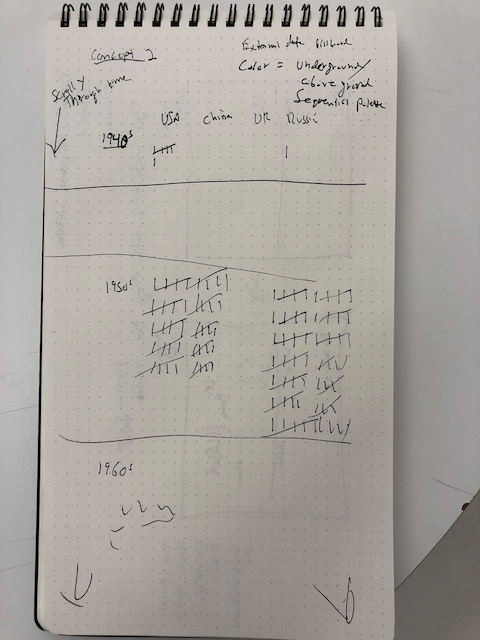 Concept 2
External data billboard
Color = underground/
above ground
Sequential palette
Scrolly
Through time
USA China UK Russia
1940s
1950s
1960s